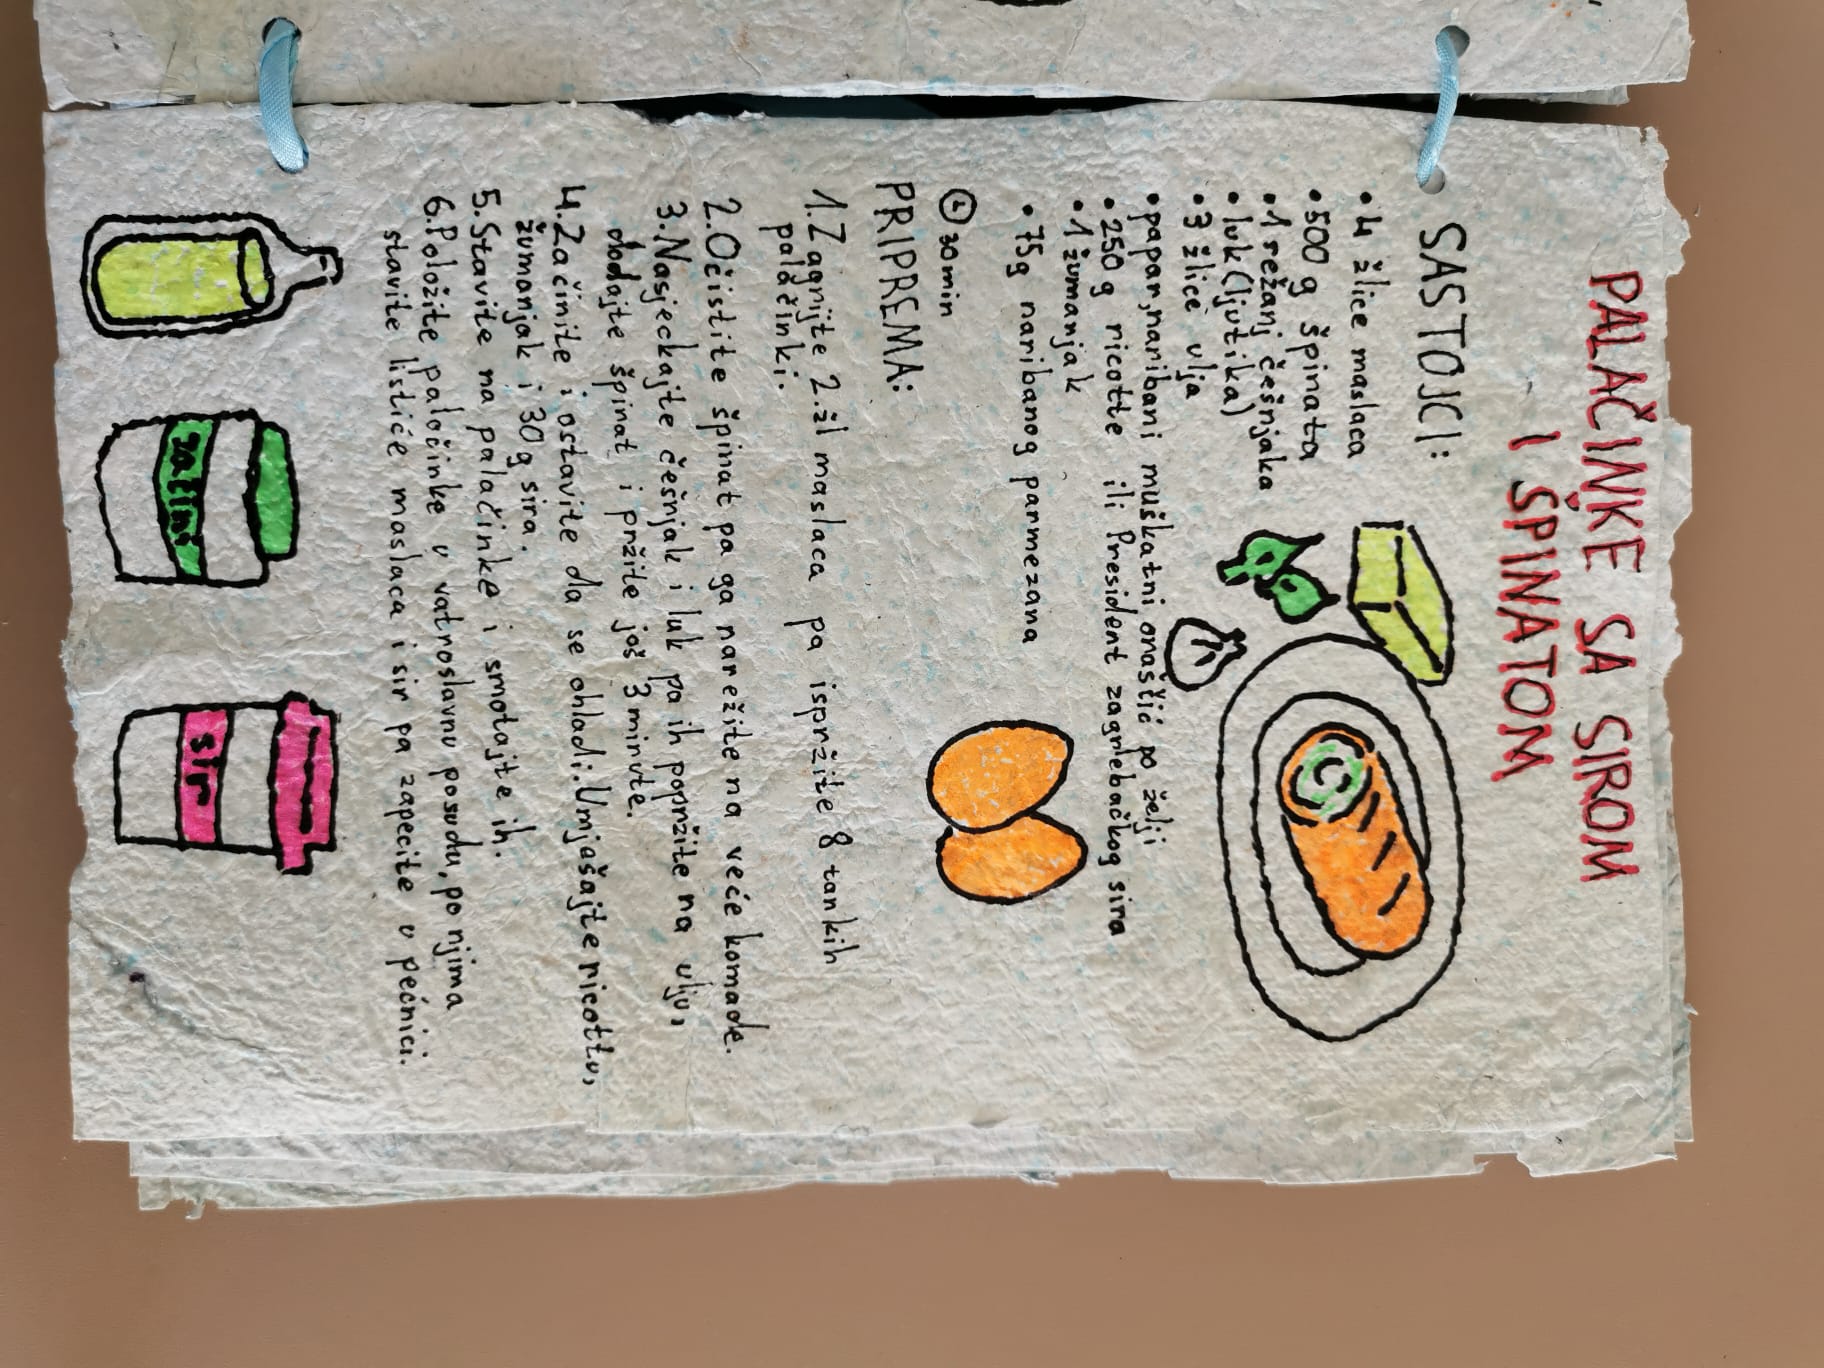 PALAČINKE SA SIROM
I ŠPINATOM
SASTOJCI:
• 4 žlice maslaca
• 500 g špinata
• 1 režanj češnjaka
• luk (ljutika)
• 3 žlice ulja
• papar, naribani muškatni oraščić po želji
• 250 g ricotte ili President zagrebačkog sira
• 1 žumanjak
• 75g naribanog parmezana
30min
PRIPREMA:
1. Zagrijte 2.žl maslaca pa ispržite 8 tankih
palačinki.
2. Očistite špinat pa ga narežite na veće komade.
3. Nasjeckajte češnjak i luk pa ih popržite na ulju,
dodajte špinat i pržite još 3 minute.
4. Začinite i ostavite da se ohladi. Umješajte ricottu,
žumanjak i 30g sira.
5. Stavite na palačinke i smotajte ih.
6. Položite palačinke u vatroslavnu posudu, po njima
stavite listiće maslaca i sir pa zapecite u pećnici.
začini
sir